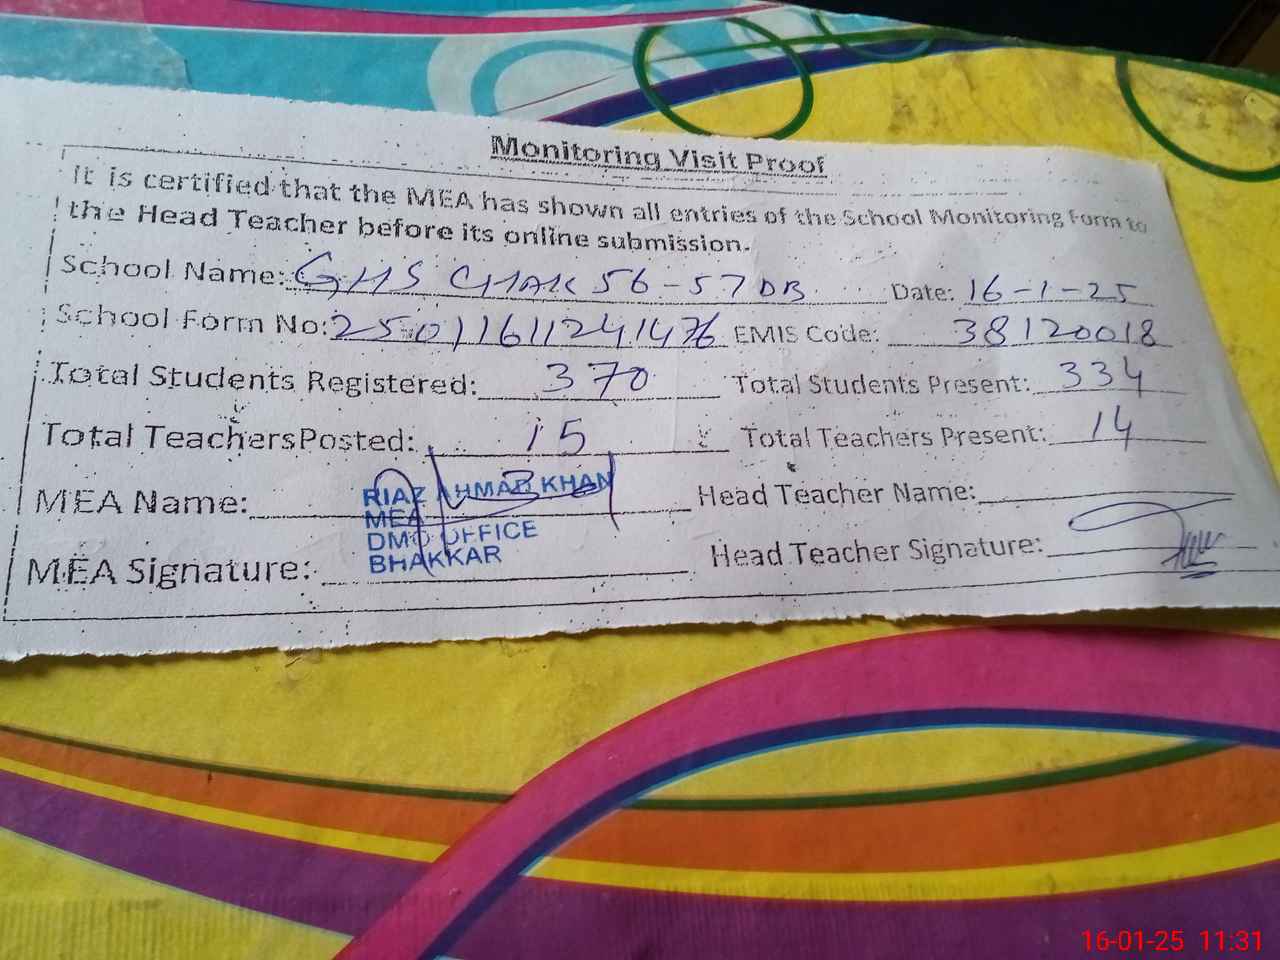 Monitoring Visit Proof
It is certified that the MEA has shown all entries of the School Monitoring Form to
the Head Teacher before its online submission.
School Name: GHS CHAK 56-57 DB Date: 16-1-25
School Form No: 25011611241476 EMIS Code: 38120018
Total Students Registered: 370 Total Students Present: 334
Total Teachers Posted: 15 Total Teachers Present: 14
MEA Name: RIAZ AHMAD KHAN Head Teacher Name:
MEA
DMO OFFICE
BHAKKAR
MEA Signature: Head Teacher Signature:
16-01-25 11:31